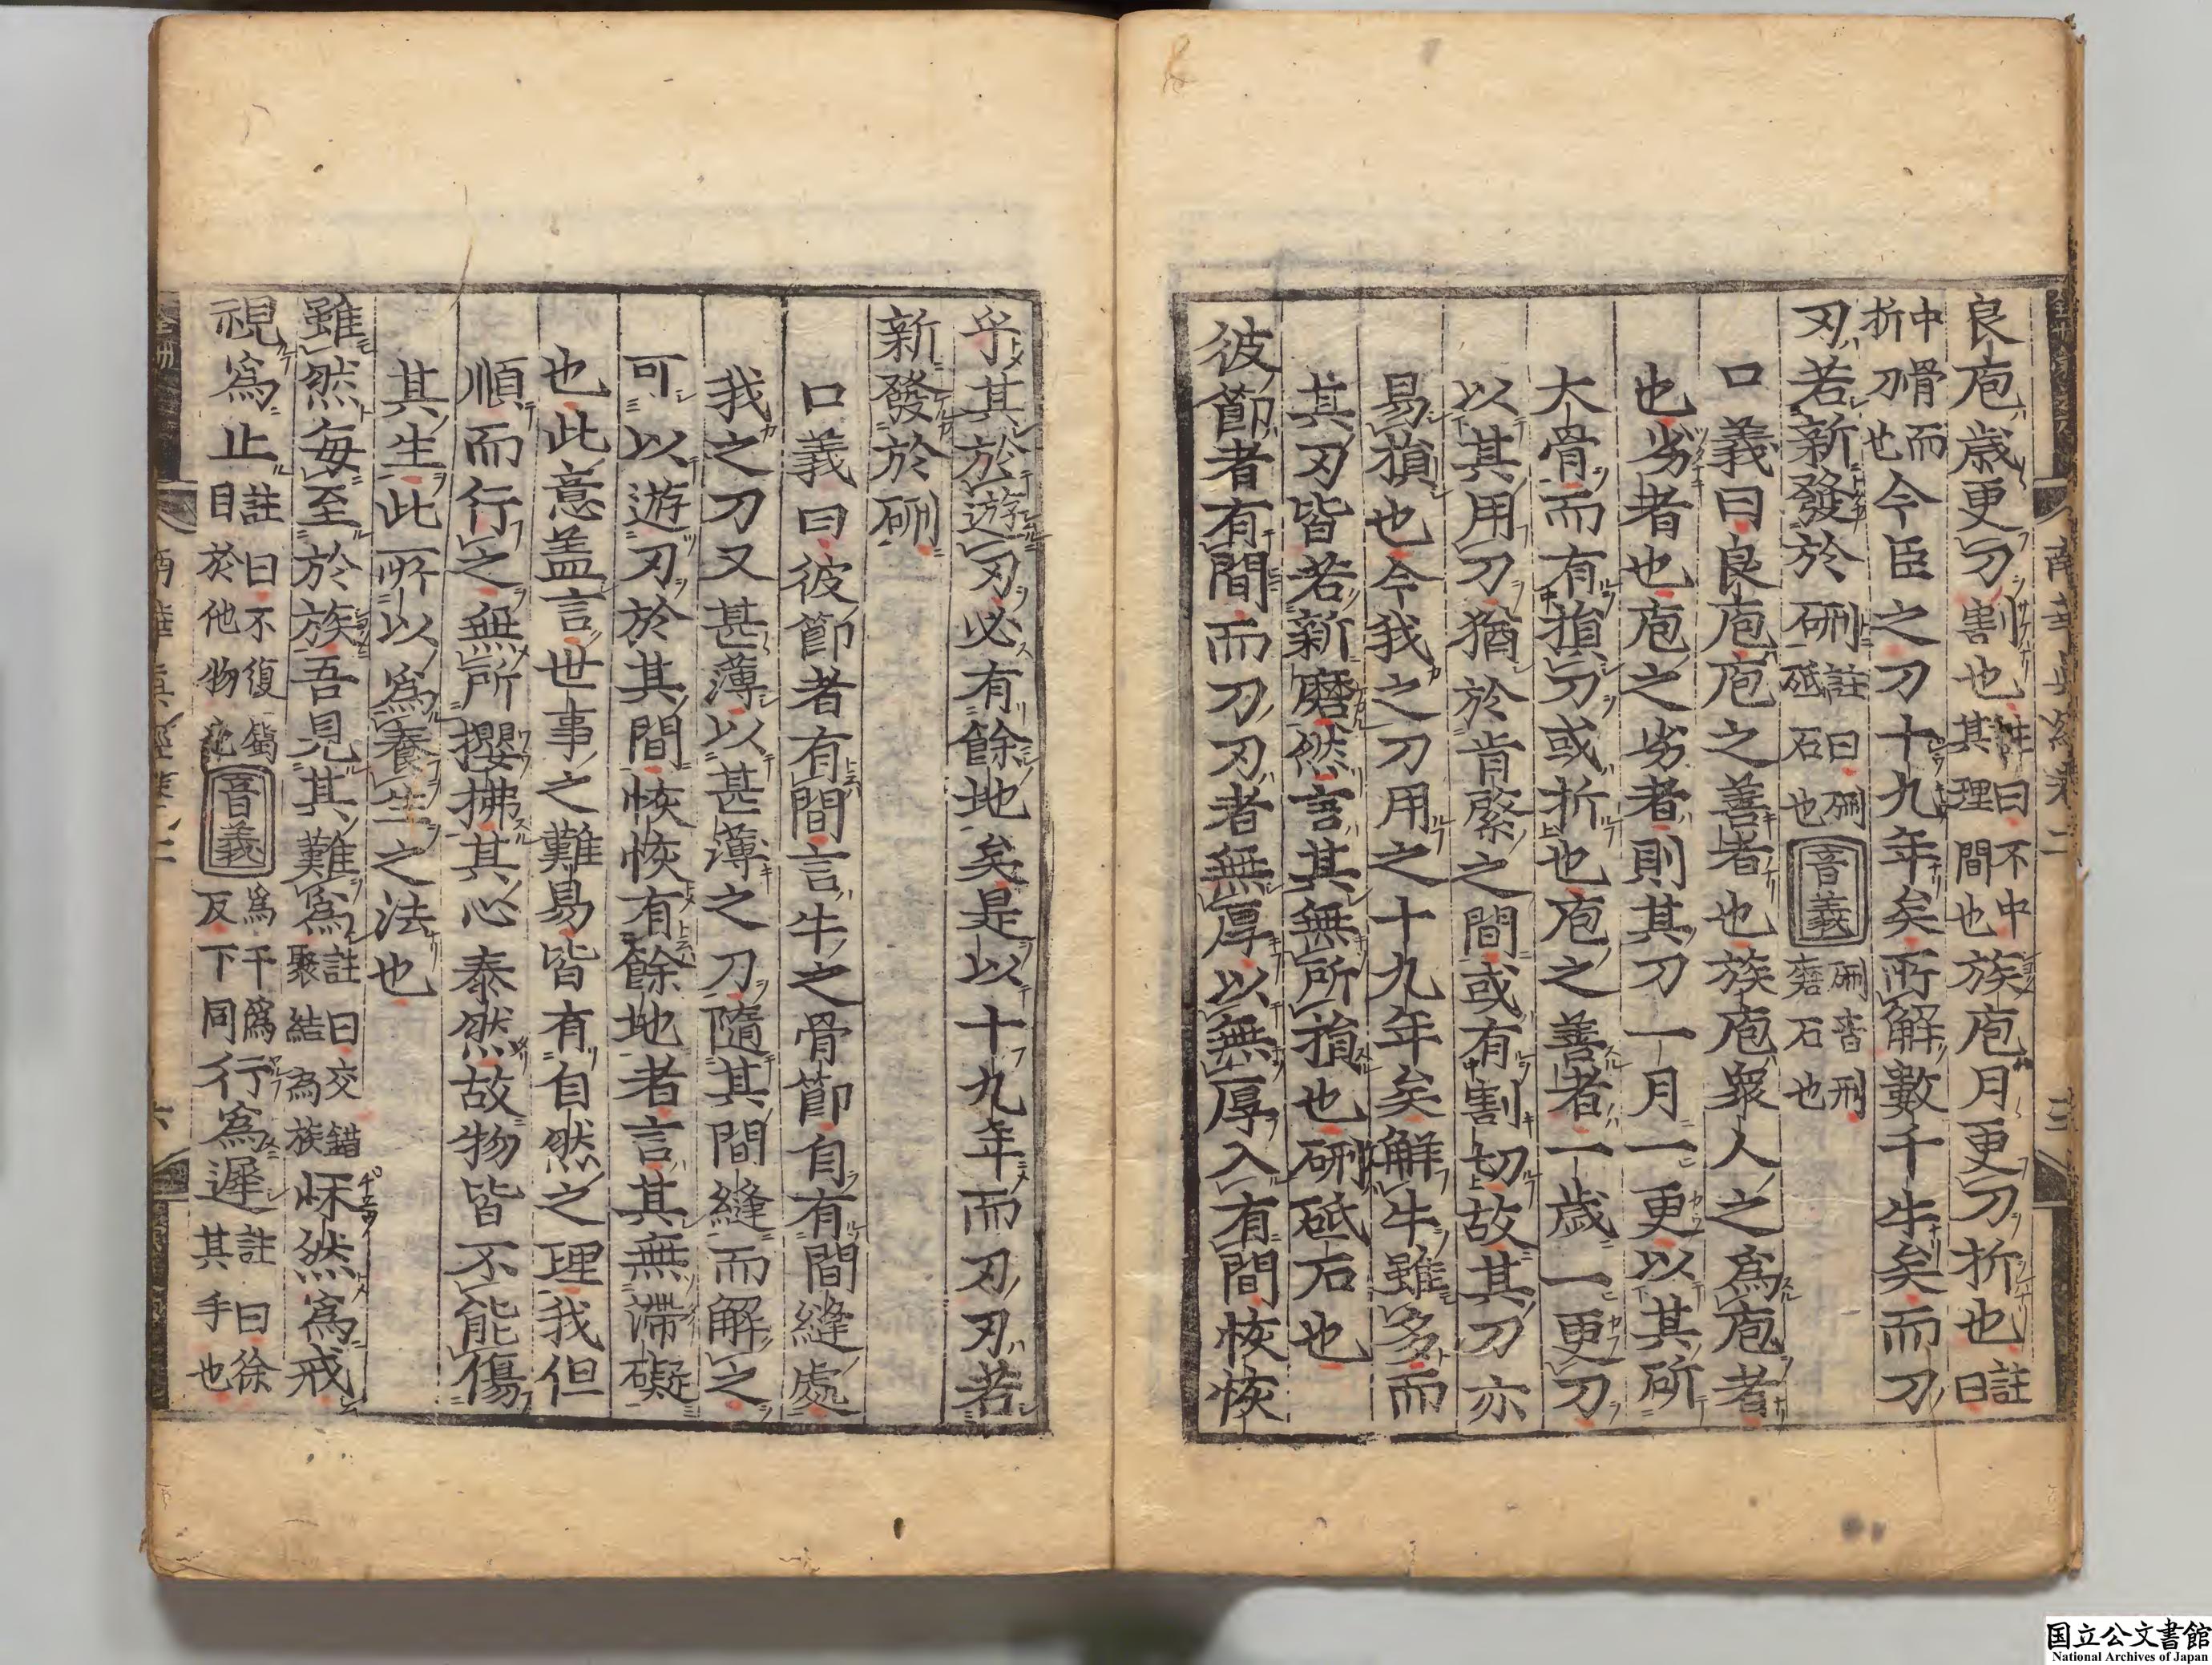 良庖歳更刀割也註曰不中其理間也族庖月更刀折也註曰
中骨而折刀也今臣之刀十九年矣所解數千牛矣而刀
刃若新發於硎註曰硎砥石也音義硎音刑磨石也
口義曰良庖庖之善者也族庖衆人之爲庖者
也劣者也庖之劣者則其刀一月一更以其斫
大骨而有損刀或折也庖之善者一歲一更刀
以其用刀猶於肯綮之間或有割切故其刀亦
易損也今我之刀用之十九年矣解牛雖多而
其刃皆若新磨然言其無所損也硎砥石也
彼節者有間而刀刃者無厚以無厚入有間恢恢
乎其於遊刃必有餘地矣是以十九年而刀刃若
新發於硎
口義曰彼節者有間言牛之骨節自有間縫處
我之刀又甚薄以甚薄之刀隨其間縫而解之
可以遊刃於其間恢恢有餘地者言其無滯礙
也此意盖言世事之難易皆有自然之理我但
順而行之無所攖拂其心泰然故物皆不能傷
其生此所以爲養生之法也
雖然每至於族吾見其難爲註曰交錯聚結為族怵然爲戒
視爲止註曰不復屬目於他物也音義爲于僞反下同行爲遲註曰徐其手也
南華真經卷二
六
国立公文書館
National Archives of Japan